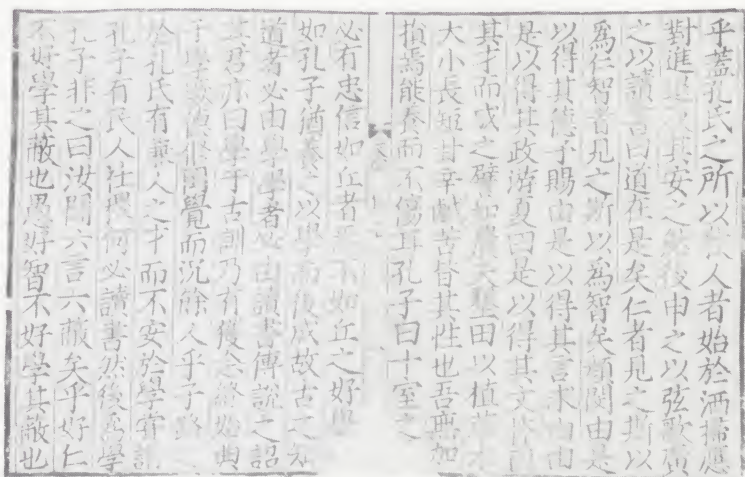 乎蓋孔氏之所以教人者始於洒掃應
對進退及其安之然後申之以弦歌廣
之以讀書曰道在是矣仁者見之斯以
為仁智者見之斯以為智矣顏閔由是
以得其德予賜由是以得其言求由由
是以得其政游夏由是以得其文皆因
其才而成之譬如農夫墾田以植草木
大小長短甘辛鹹苦皆其性也吾無加
損焉能養而不傷耳孔子曰十室之
必有忠信如丘者焉不如丘之好學
如孔子猶養之以學而後成故古之知
道者必由學學者必由讀書傳說之詔
其君亦曰學于古訓乃有獲念終始典
于學厥德脩罔覺而況餘人乎子路
於孔氏有兼人之才而不安於學嘗謂
孔子有民人社稷何必讀書然後為學
孔子非之曰汝聞六言六蔽矣乎好仁
不好學其蔽也愚好智不好學其蔽也